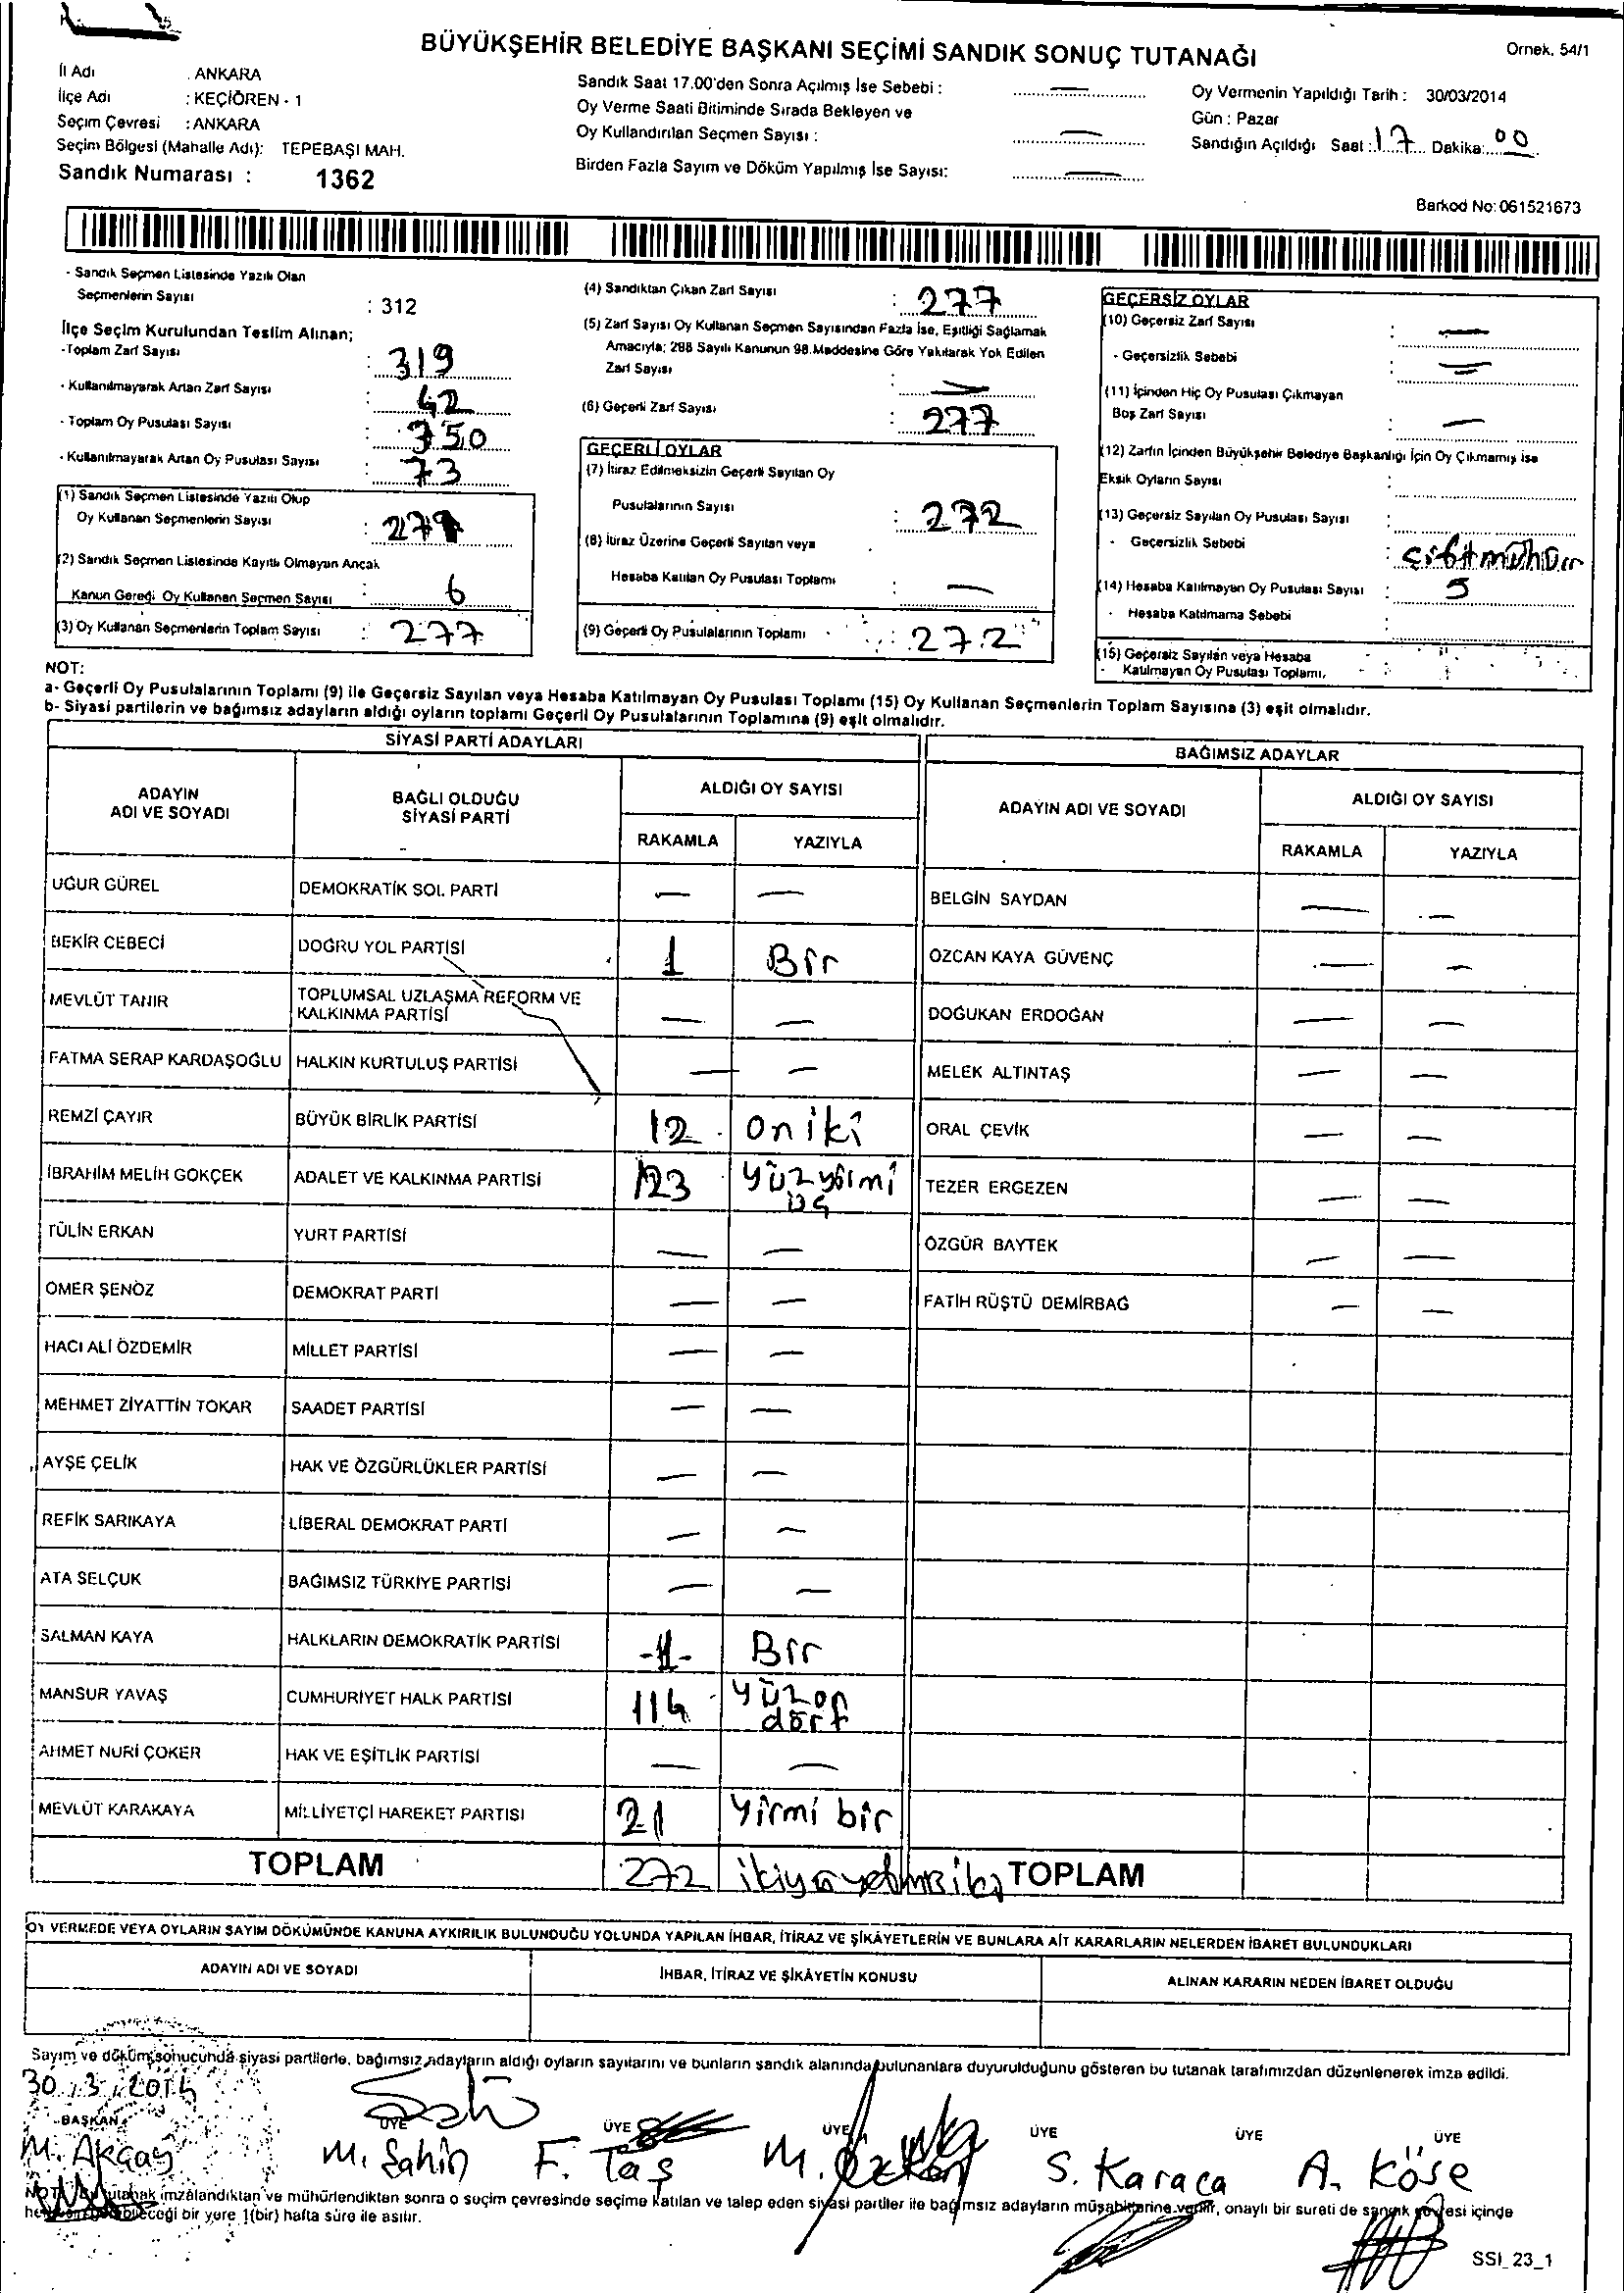 BÜYÜKŞEHİR BELEDİYE BAŞKANI SEÇİMİ SANDIK SONUÇ TUTANAĞI
Ornek. 54/1
İl Adı . ANKARA
İlçe Adı : KEÇİÖREN - 1
Seçim Çevresi : ANKARA
Seçim Bölgesi (Mahalle Adı): TEPEBAŞI MAH.
Sandık Numarası : 1362
Sandık Saat 17.00'den Sonra Açılmış İse Sebebi : —
Oy Verme Saati Bitiminde Sırada Bekleyen ve
Oy Kullandırılan Seçmen Sayısı : —
Birden Fazla Sayım ve Döküm Yapılmış İse Sayısı: —
Oy Vermenin Yapıldığı Tarih : 30/03/2014
Gün : Pazar
Sandığın Açıldığı Saat : 17 Dakika: 00
Barkod No: 061521673
- Sandık Seçmen Listesinde Yazılı Olan
Seçmenlerin Sayısı : 312
İlçe Seçim Kurulundan Teslim Alınan;
-Toplam Zarf Sayısı : 319
- Kullanılmayarak Artan Zarf Sayısı : 42
- Toplam Oy Pusulası Sayısı : 350
- Kullanılmayarak Artan Oy Pusulası Sayısı : 73
(1) Sandık Seçmen Listesinde Yazılı Olup
Oy Kullanan Seçmenlerin Sayısı :
(2) Sandık Seçmen Listesinde Kayıtlı Olmayan Ancak
Kanun Gereği Oy Kullanan Seçmen Sayısı : 6
(3) Oy Kullanan Seçmenlerin Toplam Sayısı : 277
(4) Sandıktan Çıkan Zarf Sayısı : 277
(5) Zarf Sayısı Oy Kullanan Seçmen Sayısından Fazla İse, Eşitliği Sağlamak
Amacıyla; 288 Sayılı Kanunun 98.Maddesine Göre Yakılarak Yok Edilen
Zarf Sayısı : —
(6) Geçerli Zarf Sayısı : 277
GEÇERLİ OYLAR
(7) İtiraz Edilmeksizin Geçerli Sayılan Oy
Pusulalarının Sayısı : 272
(8) İtiraz Üzerine Geçerli Sayılan veya
Hesaba Katılan Oy Pusulası Toplamı : —
(9) Geçerli Oy Pusulalarının Toplamı : 272
GEÇERSİZ OYLAR
(10) Geçersiz Zarf Sayısı : —
- Geçersizlik Sebebi : —
(11) İçinden Hiç Oy Pusulası Çıkmayan
Boş Zarf Sayısı : —
(12) Zarfın İçinden Büyükşehir Belediye Başkanlığı İçin Oy Çıkmamış ise
Eksik Oyların Sayısı :
(13) Geçersiz Sayılan Oy Pusulası Sayısı :
- Geçersizlik Sebebi : çift mühür
(14) Hesaba Katılmayan Oy Pusulası Sayısı : 5
- Hesaba Katılmama Sebebi :
(15) Geçersiz Sayılan veya Hesaba
Katılmayan Oy Pusulası Toplamı,
NOT:
a- Geçerli Oy Pusulalarının Toplamı (9) ile Geçersiz Sayılan veya Hesaba Katılmayan Oy Pusulası Toplamı (15) Oy Kullanan Seçmenlerin Toplam Sayısına (3) eşit olmalıdır.
b- Siyasi partilerin ve bağımsız adayların aldığı oyların toplamı Geçerli Oy Pusulalarının Toplamına (9) eşit olmalıdır.
SİYASİ PARTİ ADAYLARI
BAĞIMSIZ ADAYLAR
ADAYIN ADI VE SOYADI
BAĞLI OLDUĞU SİYASİ PARTİ
ALDIĞI OY SAYISI
RAKAMLA YAZIYLA
ADAYIN ADI VE SOYADI
ALDIĞI OY SAYISI
RAKAMLA YAZIYLA
UĞUR GÜREL DEMOKRATİK SOL PARTİ — — BELGİN SAYDAN — —
BEKİR CEBECİ DOĞRU YOL PARTİSİ 1 Bir OZCAN KAYA GÜVENÇ — —
MEVLÜT TANIR TOPLUMSAL UZLAŞMA REFORM VE KALKINMA PARTİSİ — — DOĞUKAN ERDOĞAN — —
FATMA SERAP KARDAŞOĞLU HALKIN KURTULUŞ PARTİSİ — — MELEK ALTINTAŞ — —
REMZİ ÇAYIR BÜYÜK BİRLİK PARTİSİ 12 oniki ORAL ÇEVİK — —
İBRAHİM MELİH GÖKÇEK ADALET VE KALKINMA PARTİSİ 123 yüzyirmi üç TEZER ERGEZEN — —
TÜLİN ERKAN YURT PARTİSİ — — ÖZGÜR BAYTEK — —
OMER ŞENÖZ DEMOKRAT PARTİ — — FATİH RÜŞTÜ DEMİRBAĞ — —
HACI ALİ ÖZDEMİR MİLLET PARTİSİ — —
MEHMET ZİYATTİN TOKAR SAADET PARTİSİ — —
AYŞE ÇELİK HAK VE ÖZGÜRLÜKLER PARTİSİ — —
REFİK SARIKAYA LİBERAL DEMOKRAT PARTİ — —
ATA SELÇUK BAĞIMSIZ TÜRKİYE PARTİSİ — —
SALMAN KAYA HALKLARIN DEMOKRATİK PARTİSİ -1- Bir
MANSUR YAVAŞ CUMHURİYET HALK PARTİSİ 114 yüzon dört
AHMET NURİ ÇOKER HAK VE EŞİTLİK PARTİSİ — —
MEVLÜT KARAKAYA MİLLİYETÇİ HAREKET PARTISI 21 Yirmi bir
TOPLAM 272 TOPLAM
OY VERMEDE VEYA OYLARIN SAYIM DÖKÜMÜNDE KANUNA AYKIRILIK BULUNDUĞU YOLUNDA YAPILAN İHBAR, İTİRAZ VE ŞİKÂYETLERİN VE BUNLARA AİT KARARLARIN NELERDEN İBARET BULUNDUKLARI
ADAYIN ADI VE SOYADI İHBAR, İTİRAZ VE ŞİKÂYETİN KONUSU ALINAN KARARIN NEDEN İBARET OLDUĞU
Sayım ve döküm sonucunda siyasi partilerle, bağımsız adayların aldığı oyların sayılarını ve bunların sandık alanında bulunanlara duyurulduğunu gösteren bu tutanak tarafımızdan düzenlenerek imza edildi.
30.3.2014
BAŞKAN ÜYE ÜYE ÜYE ÜYE ÜYE ÜYE
M. Akçay M. Şahin F. Taş M. Özkan S. Karaca A. Köse
NOT: tutanak imzalandıktan ve mühürlendikten sonra o seçim çevresinde seçime katılan ve talep eden siyasi partiler ile bağımsız adayların müşahitlerine verilir, onaylı bir sureti de sandık çevresi içinde
bir yere 1(bir) hafta süre ile asılır.
SSI_23_1